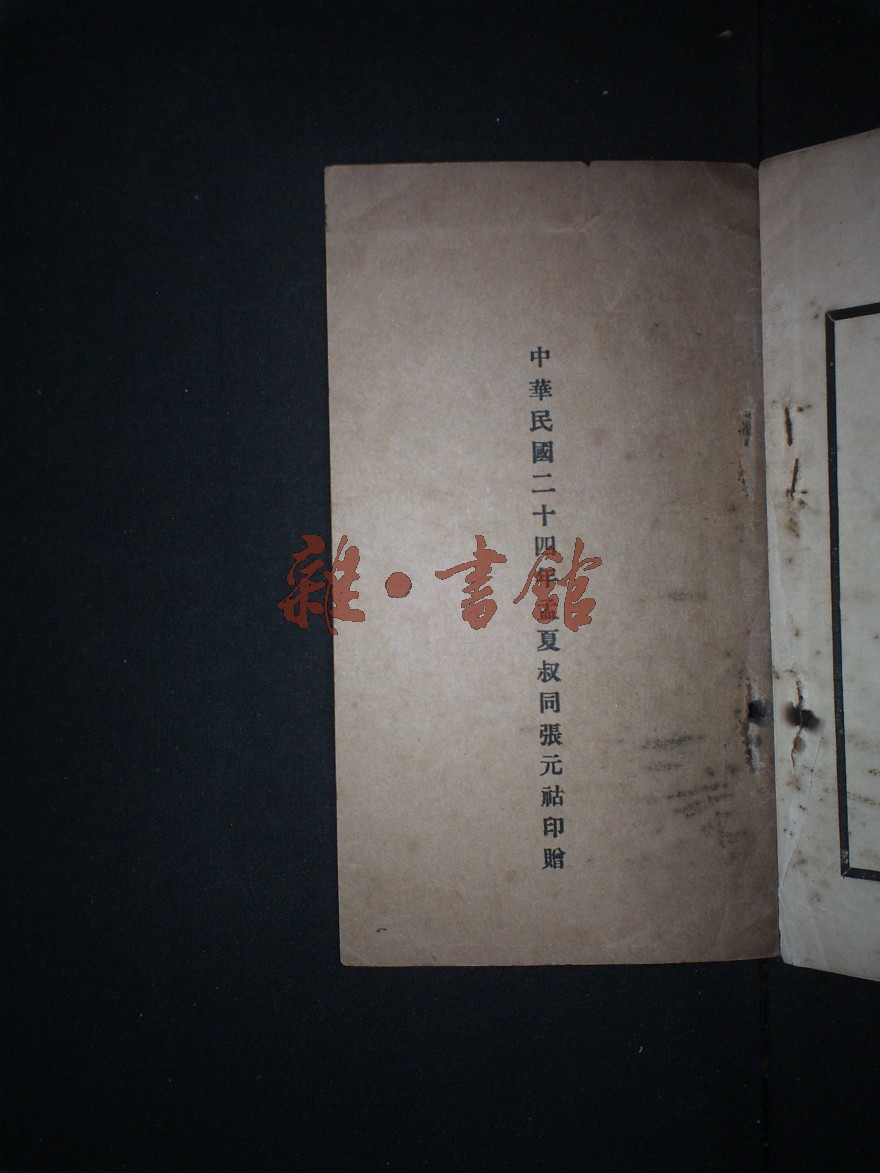 中華民國二十四年孟夏叔同張元祜印贈
雜·書館